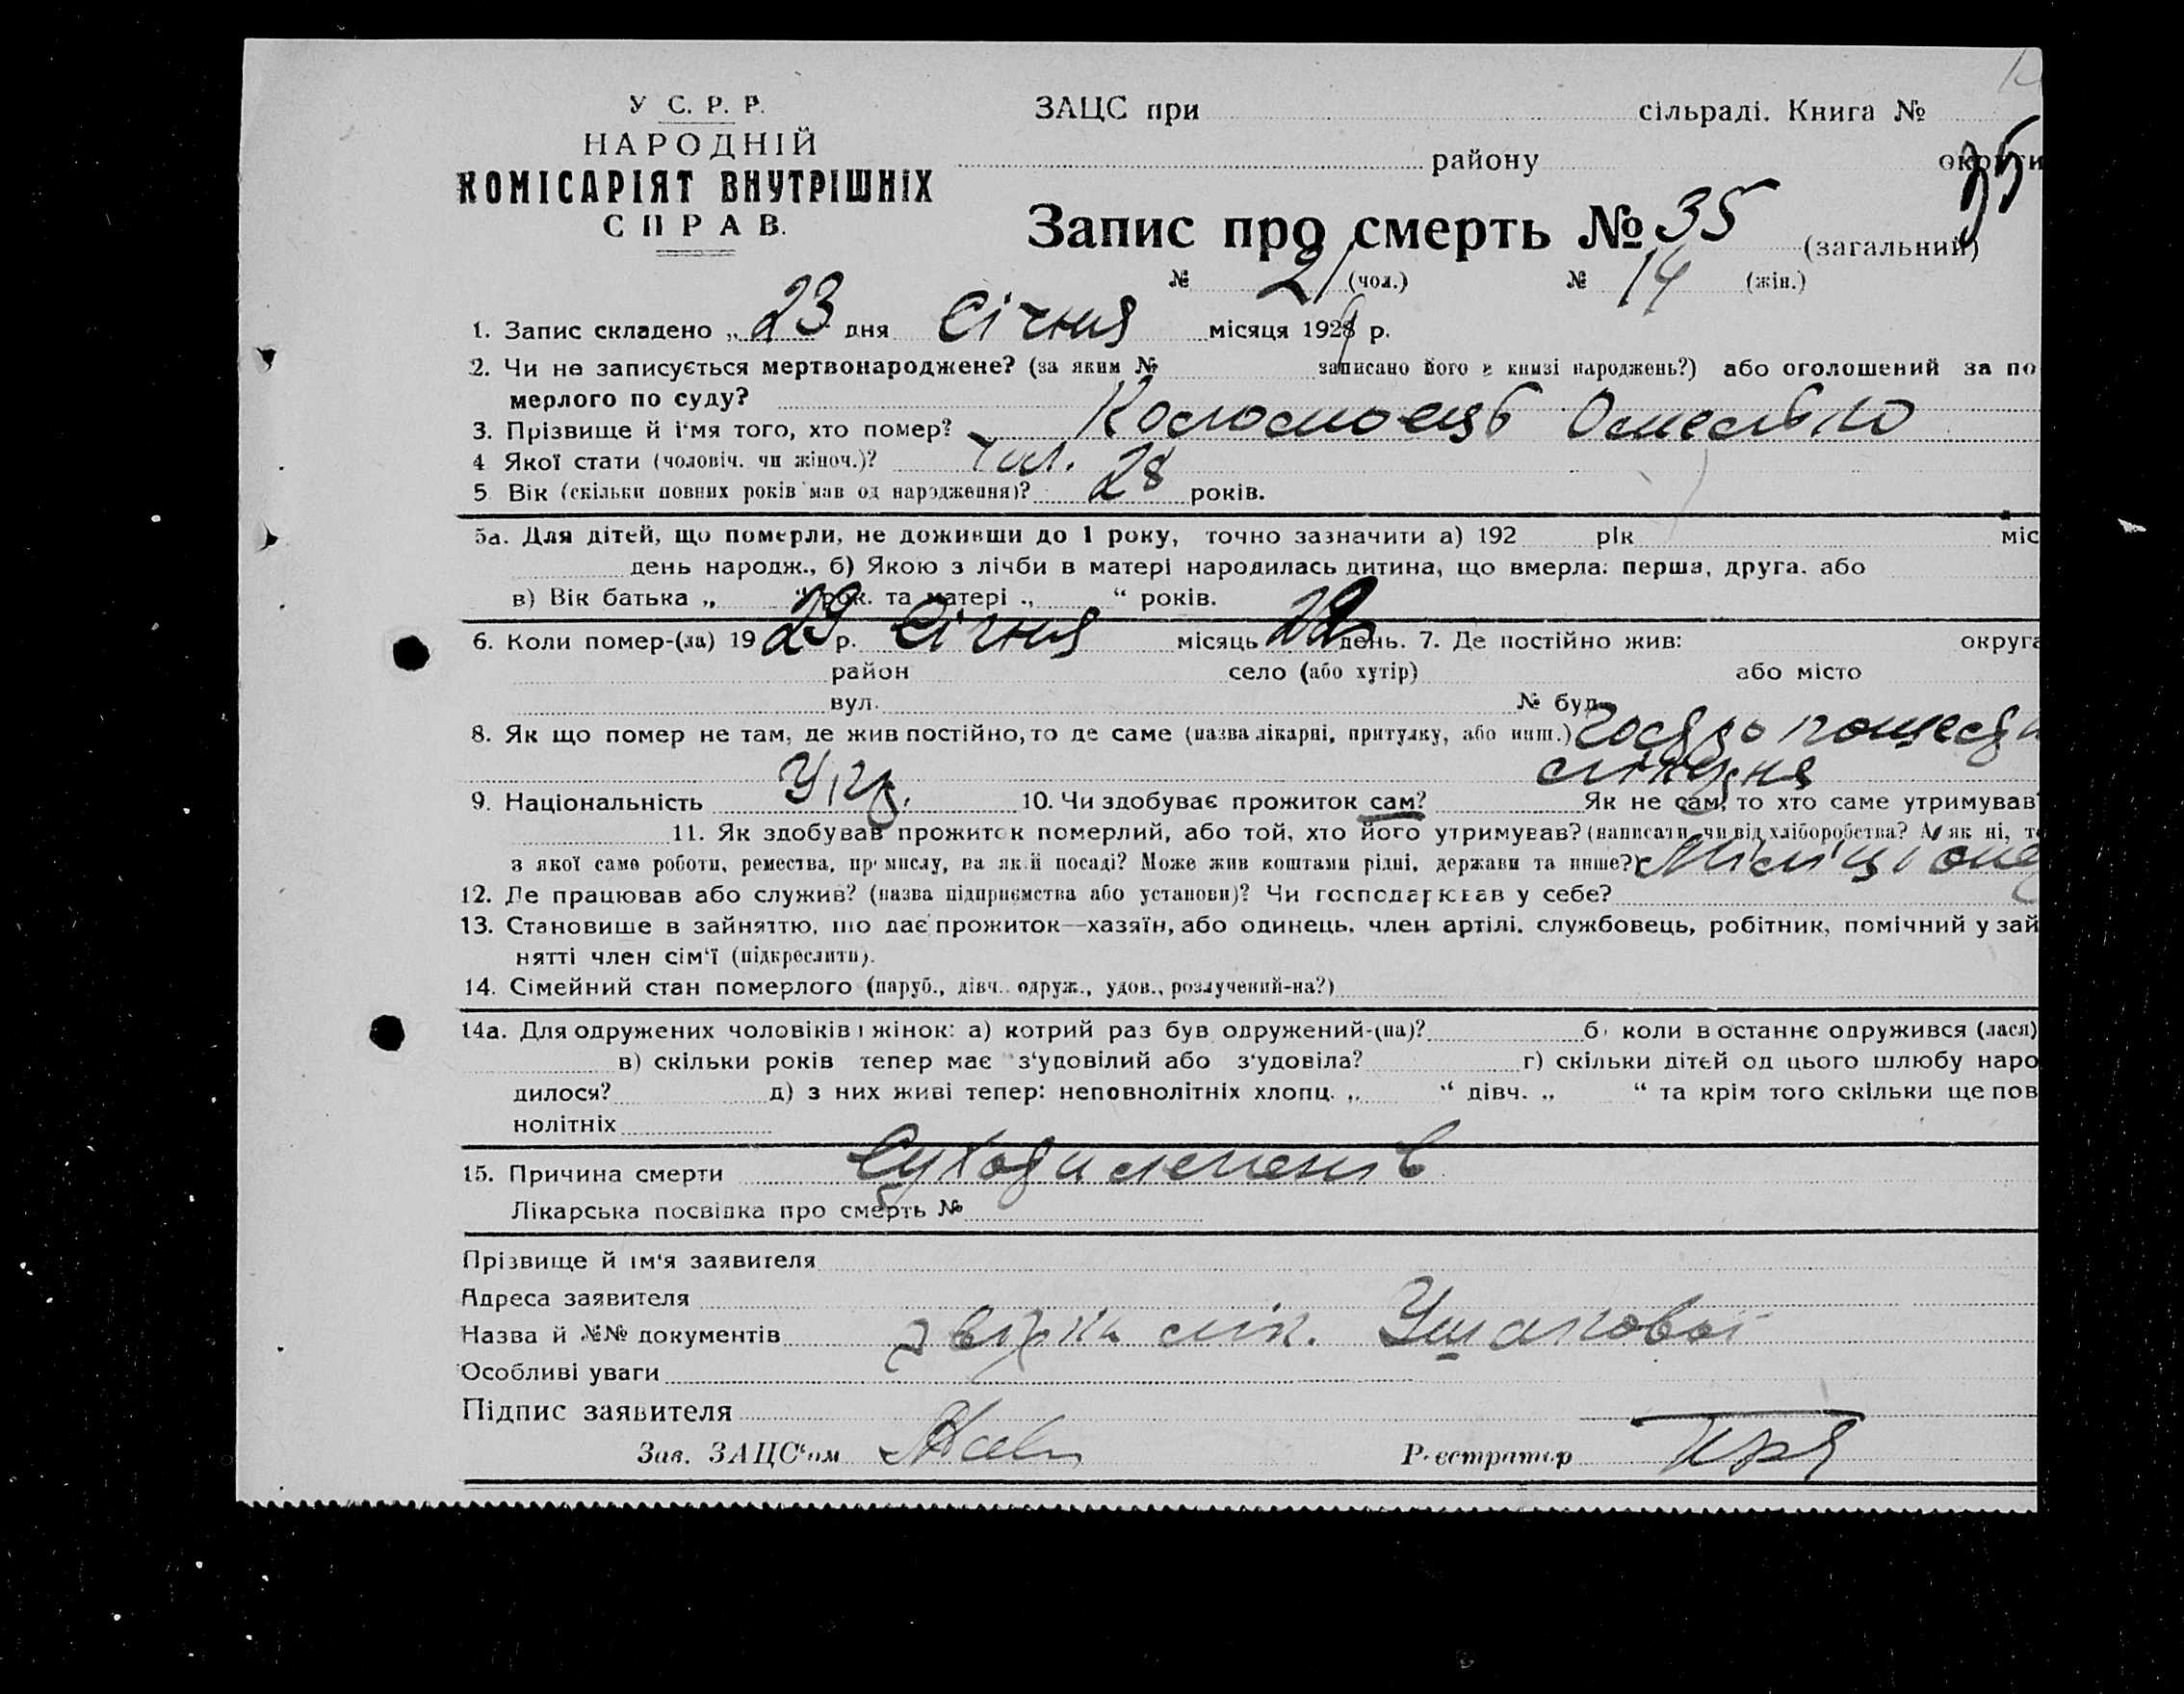 У С. Р. Р.
НАРОДНІЙ
КОМІСАРІЯТ ВНУТРІШНІХ
СПРАВ.
ЗАЦС при сільраді. Книга №
району округи
35
Запис про смерть № 35 (загальний)
№ 21 (чол.) № 14 (жін.)
1. Запис складено „ 23 дня Січня місяця 1929 р.
2. Чи не записується мертвонароджене? (за яким № записано його в книзі народжень?) або оголошений за по
мерлого по суду?
3. Прізвище й і'мя того, хто помер?
4 Якої стати (чоловіч. чи жіноч.)? чол.
5 Вік (скільки повних років мав од народження)? 28 років.
5а. Для дітей, що померли, не доживши до 1 року, точно зазначити а) 192 рік міс
день народж., б) Якою з лічби в матері народилась дитина, що вмерла: перша, друга, або
в) Вік батька „ “ рок. та матері „ “ років.
6. Коли помер-(ла) 19 29 р. Січня місяць 22 день. 7. Де постійно жив: округа
район село (або хутір) або місто
вул. № буд.
8. Як що помер не там, де жив постійно, то де саме (назва лікарні, притулку, або инш.)
9. Національність Укр. 10. Чи здобуває прожиток сам? Як не сам, то хто саме утримував
11. Як здобував прожиток померлий, або той, хто його утримував? (написати чи від хліборобства? А як ні, то
з якої саме роботи, ремества, промислу, на якій посаді? Може жив коштами рідні, держави та инше?) Міліціоне
12. Де працював або служив? (назва підприємства або установи)? Чи господарював у себе?
13. Становище в зайняттю, що дає прожиток—хазяїн, або одинець, член артілі, службовець, робітник, помічний у зай
нятті член сім'ї (підкреслити).
14. Сімейний стан померлого (паруб., дівч. одруж., удов., розлучений-на?)
14а. Для одружених чоловіків і жінок: а) котрий раз був одружений-(на)? б) коли востаннє одружився (лася)
в) скільки років тепер має з'удовілий або з'удовіла? г) скільки дітей од цього шлюбу наро
дилося? д) з них живі тепер: неповнолітніх хлопц. „ “ дівч. „ “ та крім того скільки ще пов
нолітніх
15. Причина смерти
Лікарська посвідка про смерть №
Прізвище й ім'я заявителя
Адреса заявителя
Назва й №№ документів лік. Ушакової
Особливі уваги
Підпис заявителя
Зав. ЗАЦС'ом Реєстратор